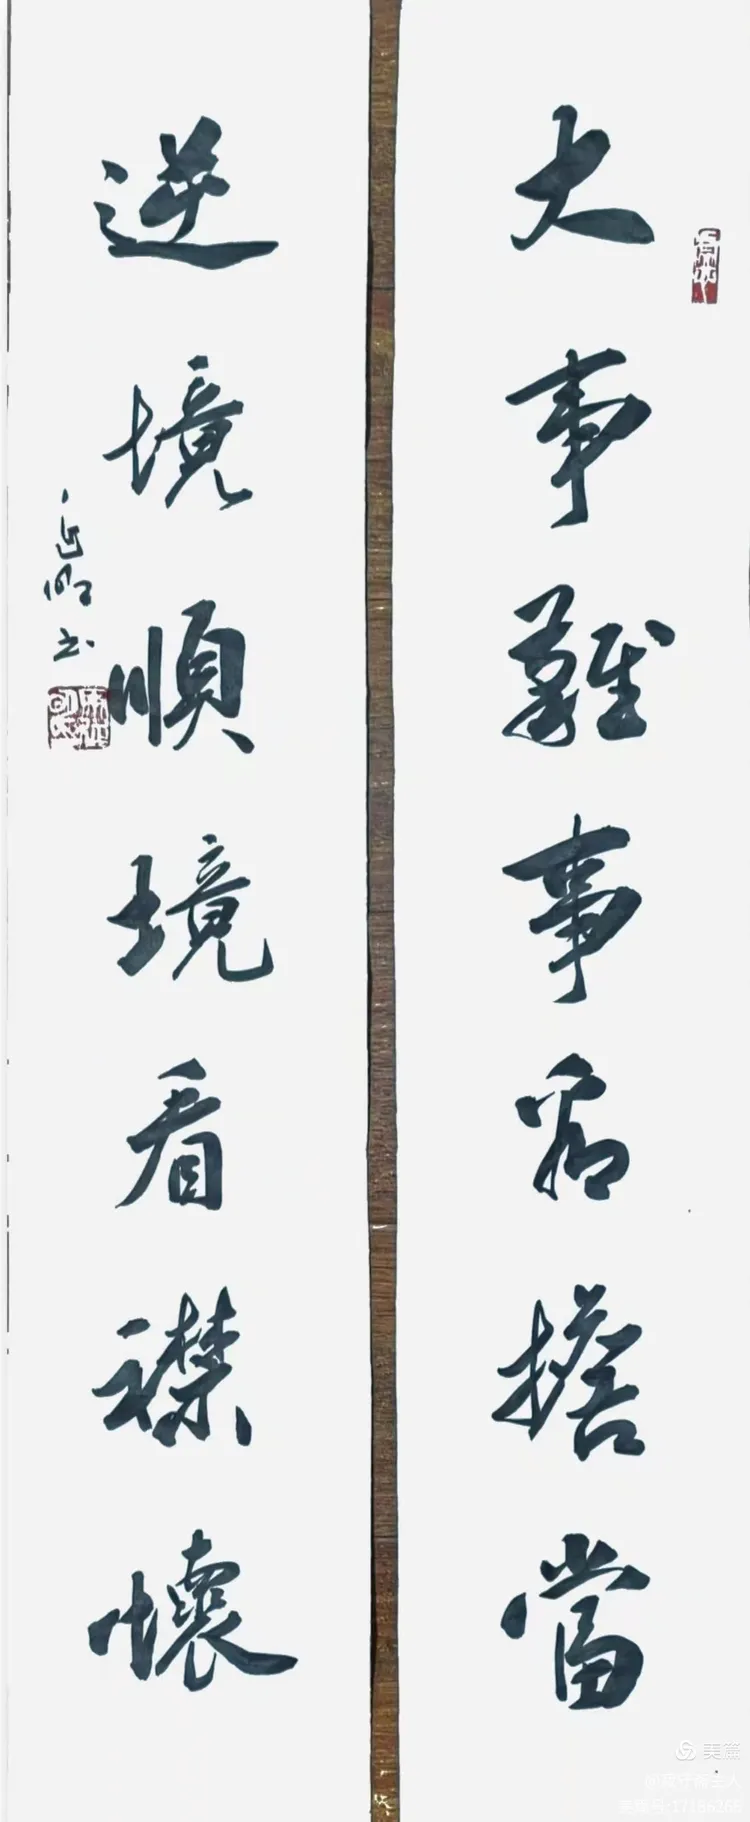 大事難事看擔當
逆境順境看襟懷
美篇